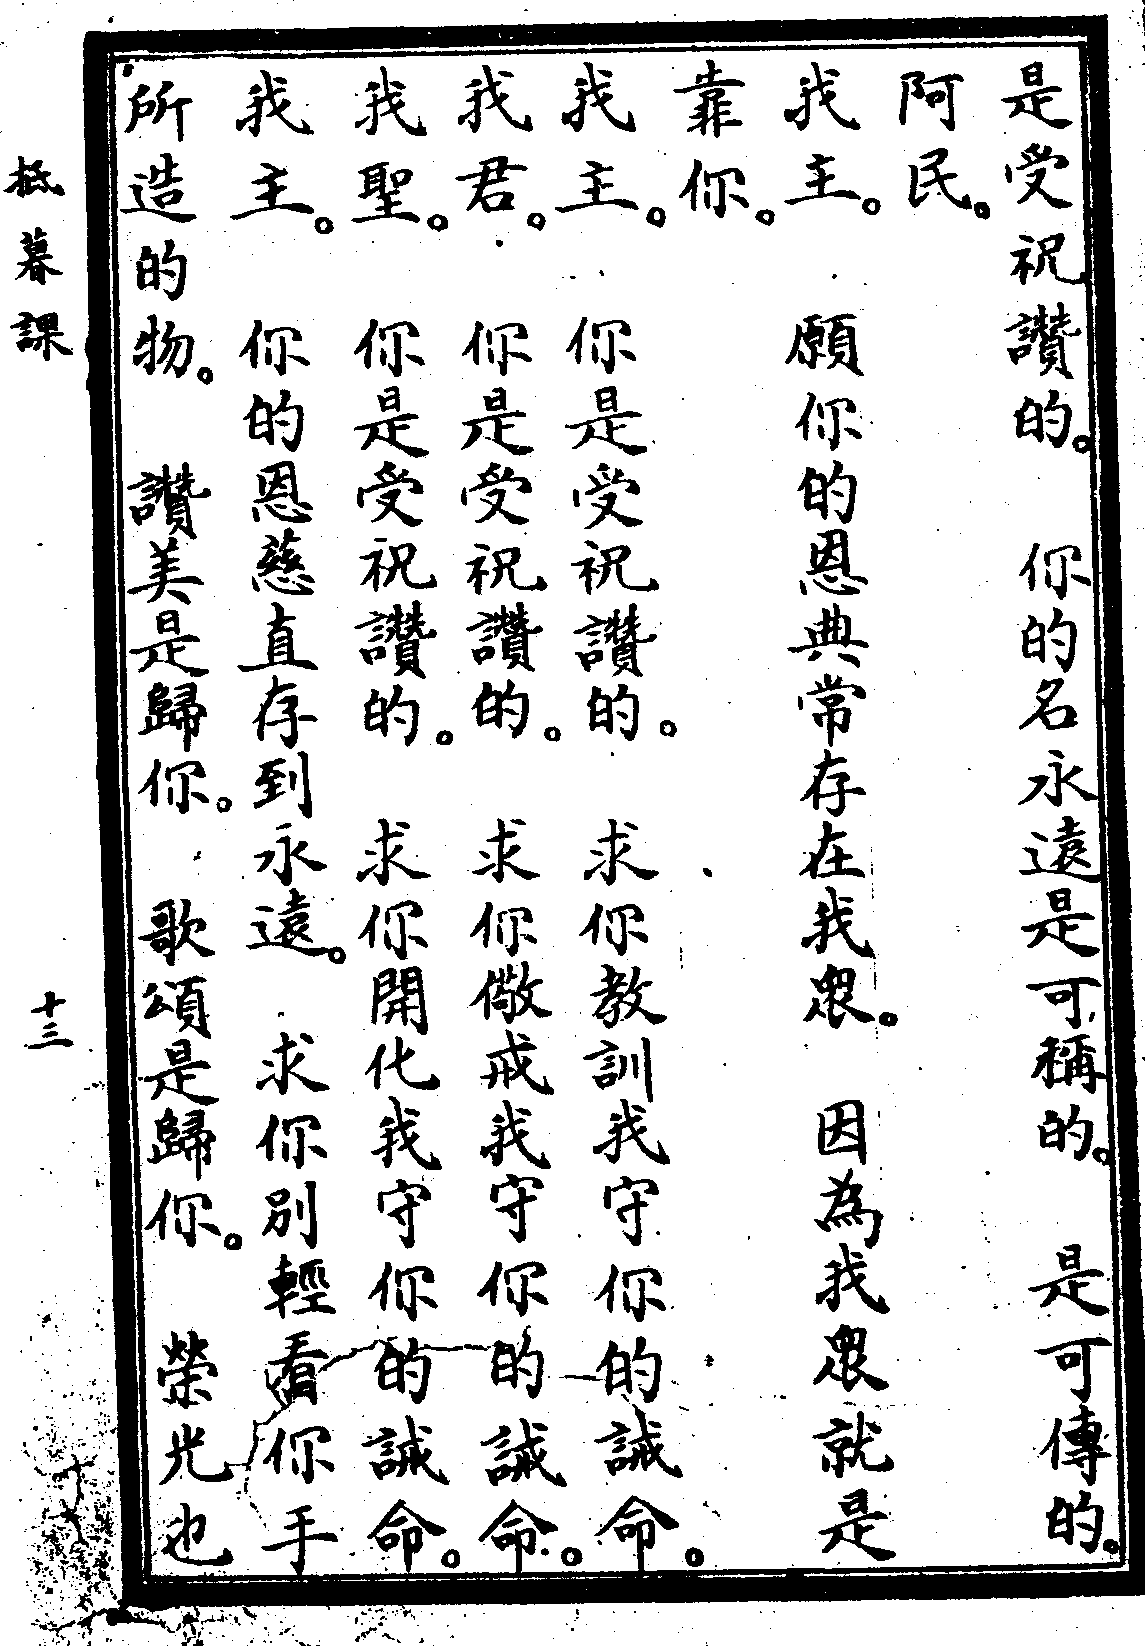 是受祝讚的。 你的名永遠是可稱的。 是可傳的。
阿民。
我主。 願你的恩典常存在我眾。 因為我眾就是
靠你。
我主。 你是受祝讚的。 求你教訓我守你的誡命。
我君。 你是受祝讚的。 求你儆戒我守你的誡命。
我聖。 你是受祝讚的。 求你開化我守你的誡命。
我主。 你的恩慈直存到永遠。 求你別輕看你手
所造的物。 讚美是歸你。 歌頌是歸你。 榮光也
抵暮課
十三